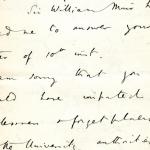 Sir William Muir h
me to answer you
of 10th inst.
sorry that you
have imputed
forget
the University authorit